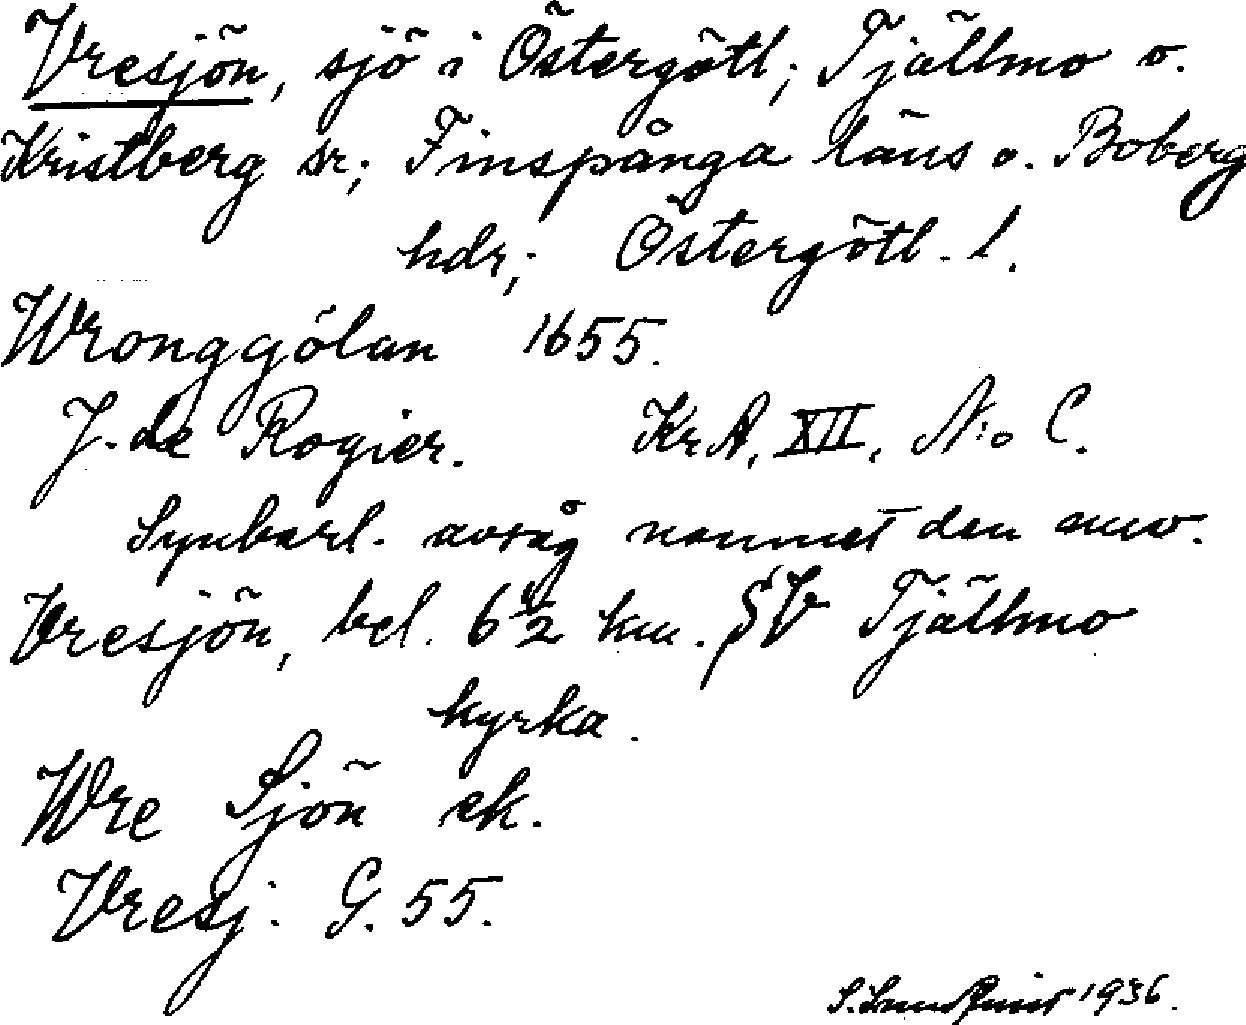 Vresjön, sjö i Östergötl; Tjällmo o.
Kristberg sr; Finspånga läns o. Boberg
hdr; Östergötl. l.
Wronggölan 1655.
J. de Rogier. KrA, XII, N:o C.
Synbarl. avsåg namnet den nuv.
Vresjön, bel. 6 1/2 km. SV Tjällmo
kyrka.
Wre Sjön ek.
Vresj. G. 55.
S. 1936.